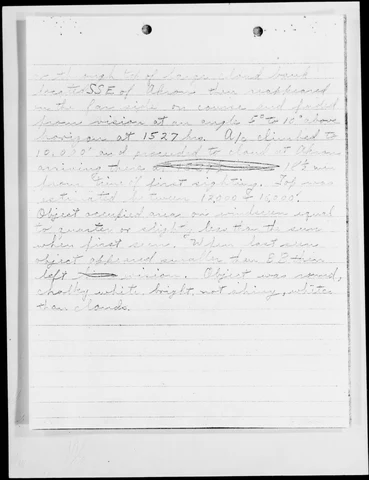 SSE of Akron then reappeared
on the far side on course and faded
from vision at an angle 5° to 10° above
horizon at 1527 hrs. A/c climbed to
10,000' and proceeded to cloud at Akron
arriving there at
from time of first sighting. Top was
estimated between 12,000 + 13,000'.
Object occupied area on windscreen equal
to quarter or slightly less than the sun
when first seen. When last seen
object appeared smaller than BB then
left vision. Object was round,
chalky white, bright, not shiny, whiter
than clouds.